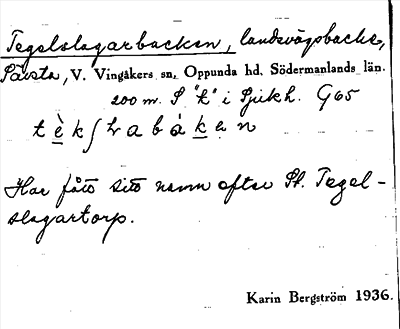 Tegelslagarbacken, landsvägsbacke,
Såvsta, V. Vingåkers sn, Oppunda hd, Södermanlands län.
200 m. S "k" i Sjukh. G65
Har fått sitt namn efter St. Tegel-
slagartorp.
Karin Bergström 1936.